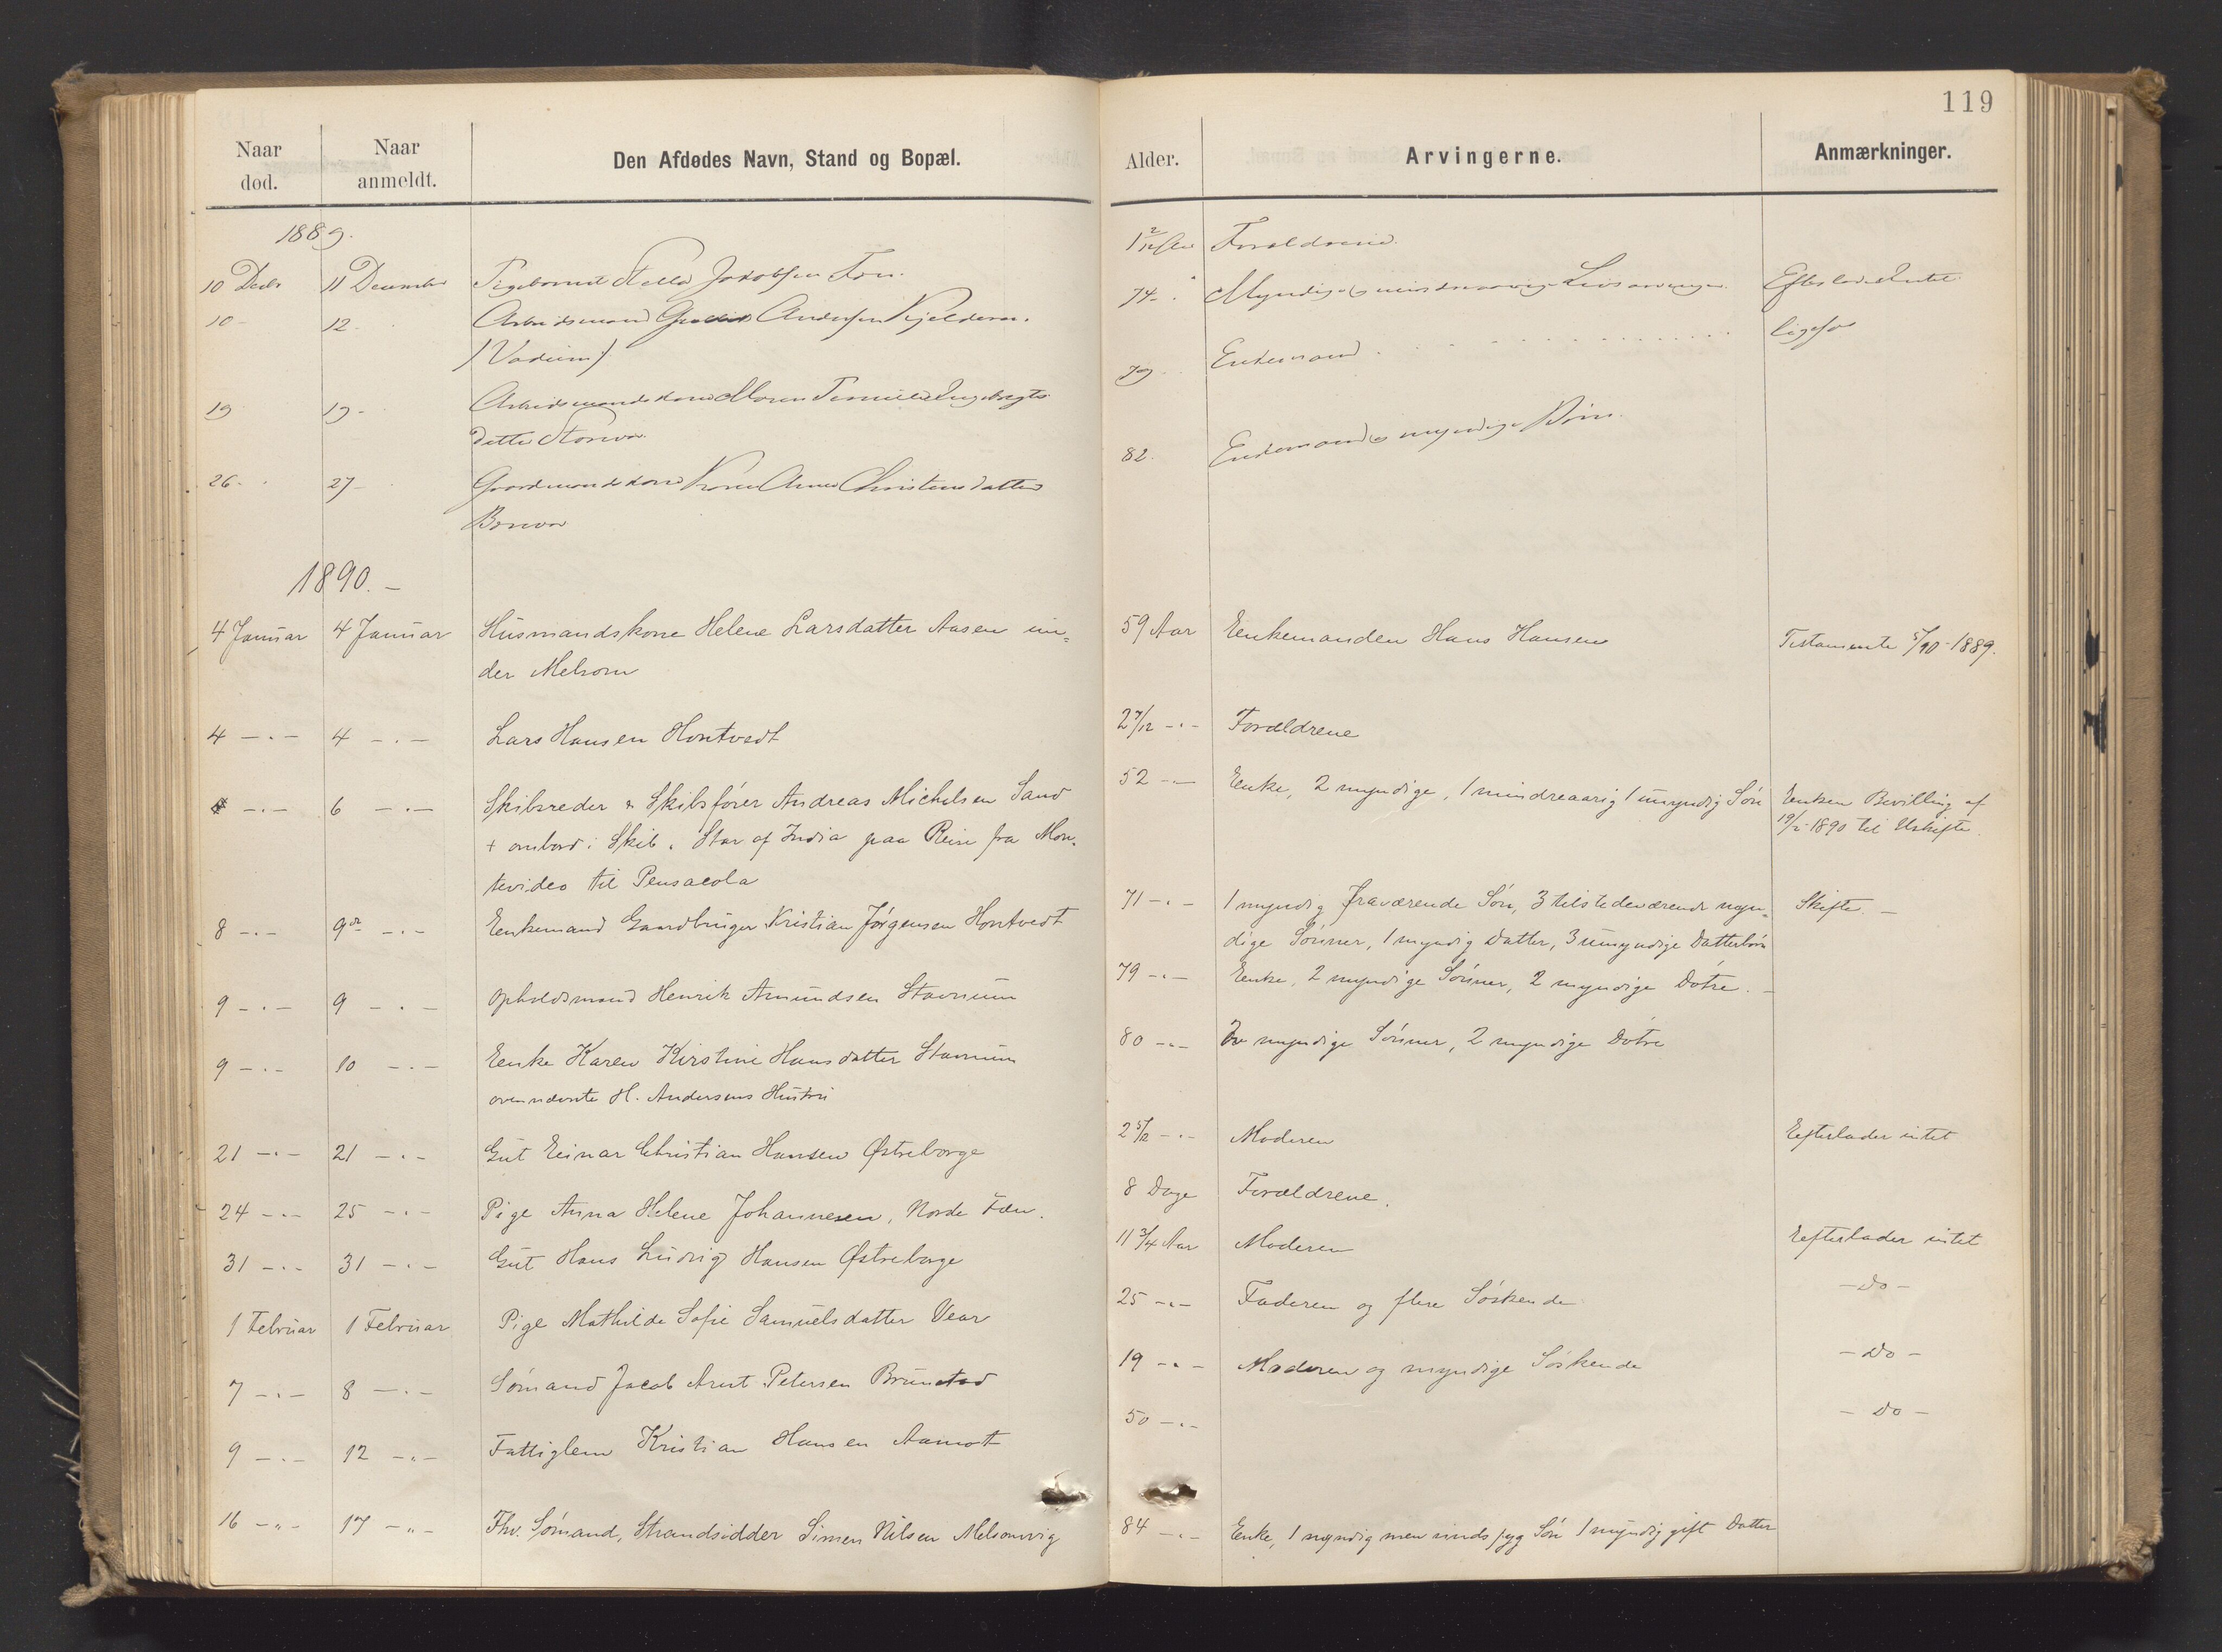 119
Naar død.
Naar anmeldt.
Den Afdødes Navn, Stand og Bopæl.
Alder.
Arvingerne.
Anmærkninger.
1889.
10 Decbr 11 December Pigebarnet Jakobsen Fon. 1 2/12 Aar Forældrene.
10 - 12 - Arbeidsmand Andersen Kjelderen. 74 - Myndige og mindreaarige Livsarvinger. Efterlader Intet
(Vadum)
19 19 - Arbeidsmandskone Maren Ingebregts 79 - Enkemand ligesaa
datter Storevar.
26 - 27 - Gaardmandskone Karen Anne Christensdatter 82. Enkemand og myndige Børn.
Borrevar
1890. -
4 Januar 4 Januar Husmandskone Helene Larsdatter Aasen un= 59 Aar Enkemanden Hans Hansen Testamente 5/10-1889.
der Melsom
4 -.- 4 -.- Lars Hansen Hontvedt 2 7/12 -.- Forældrene
-.- 6 -.- Skibsreder & Skibsfører Andreas Michelsen Sand 52 -.- Enke, 2 myndige, 1 mindreaarig 1 umyndig Søn Enken Bevilling af
19/2-1890 til Uskifte.
+ ombord i Skib. Star of India paa Reise fra Mon-
tevideo til Pensacola
8 -.- 9de -.- Enkemand Gaardbruger Kristian Jørgensen Hontvedt 71 -.- 1 myndig fraværende Søn, 3 tilstedeværende myn= Skifte. -
dige Sønner, 1 myndig Datter, 3 umyndige Datterbørn
9 -.- 9 -.- Opholdsmand Henrik Amundsen Stavnum 79 -.- Enke, 2 myndige Sønner, 2 myndige Døtre. -
9 -.- 10 -.- Enke Karen Kirstine Hansdatter Stavnum 80 -.- To myndige Sønner, 2 myndige Døtre
ovennævnte H. Andersens Hustru
21 -.- 21 -.- Gut Einar Christian Hansen Østreborge 2 5/12 -.- Moderen Efterlader intet
24 -.- 25 -.- Pige Anna Helene Johannesen, Nordre Føen. 8 Dage Forældrene.
31 -.- 31 -.- Gut Hans Ludvig Hansen Østreborge 11 3/4 Aar Moderen Efterlader intet
1 Februar 1 Februar Pige Mathilde Sofie Samuelsdatter Vear 25 -.- Faderen og flere Søskende - Do -
7 -.- 8 -.- Sømand Jacob Arnt Petersen Brunstad 19 -.- Moderen og myndige Søskende - Do -
9 -.- 12 -.- Fattiglem Kristian Hansen Aamot 50 -.- - Do -
16 -"- 17 -"- Fhv. Sømand, Strandsidder Simen Nilsen Melsomvig 84 -.- Enke, 1 myndig men sindssyg Søn 1 myndig gift Datter